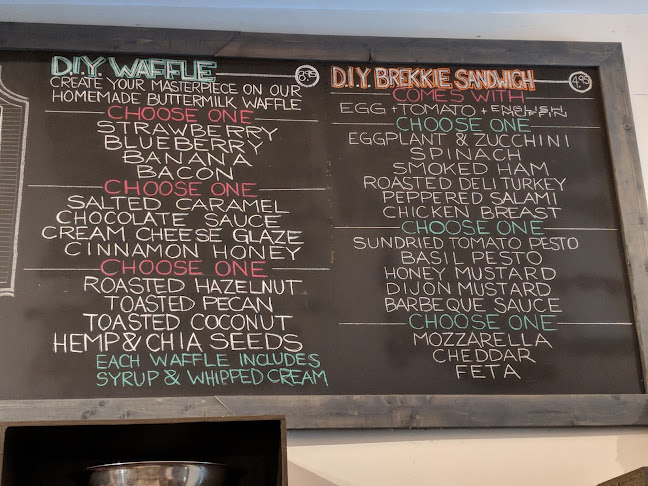 D.I.Y. WAFFLE 8.95
CREATE YOUR MASTERPIECE ON OUR
HOMEMADE BUTTERMILK WAFFLE
CHOOSE ONE
STRAWBERRY
BLUEBERRY
BANANA
BACON
CHOOSE ONE
SALTED CARAMEL
CHOCOLATE SAUCE
CREAM CHEESE GLAZE
CINNAMON HONEY
CHOOSE ONE
ROASTED HAZELNUT
TOASTED PECAN
TOASTED COCONUT
HEMP & CHIA SEEDS
EACH WAFFLE INCLUDES
SYRUP & WHIPPED CREAM
D.I.Y. BREKKIE SANDWICH 4.95
COMES WITH
EGG + TOMATO + ENGLISH MUFFIN
CHOOSE ONE
EGGPLANT & ZUCCHINI
SPINACH
SMOKED HAM
ROASTED DELI TURKEY
PEPPERED SALAMI
CHICKEN BREAST
CHOOSE ONE
SUNDRIED TOMATO PESTO
BASIL PESTO
HONEY MUSTARD
DIJON MUSTARD
BARBEQUE SAUCE
CHOOSE ONE
MOZZARELLA
CHEDDAR
FETA